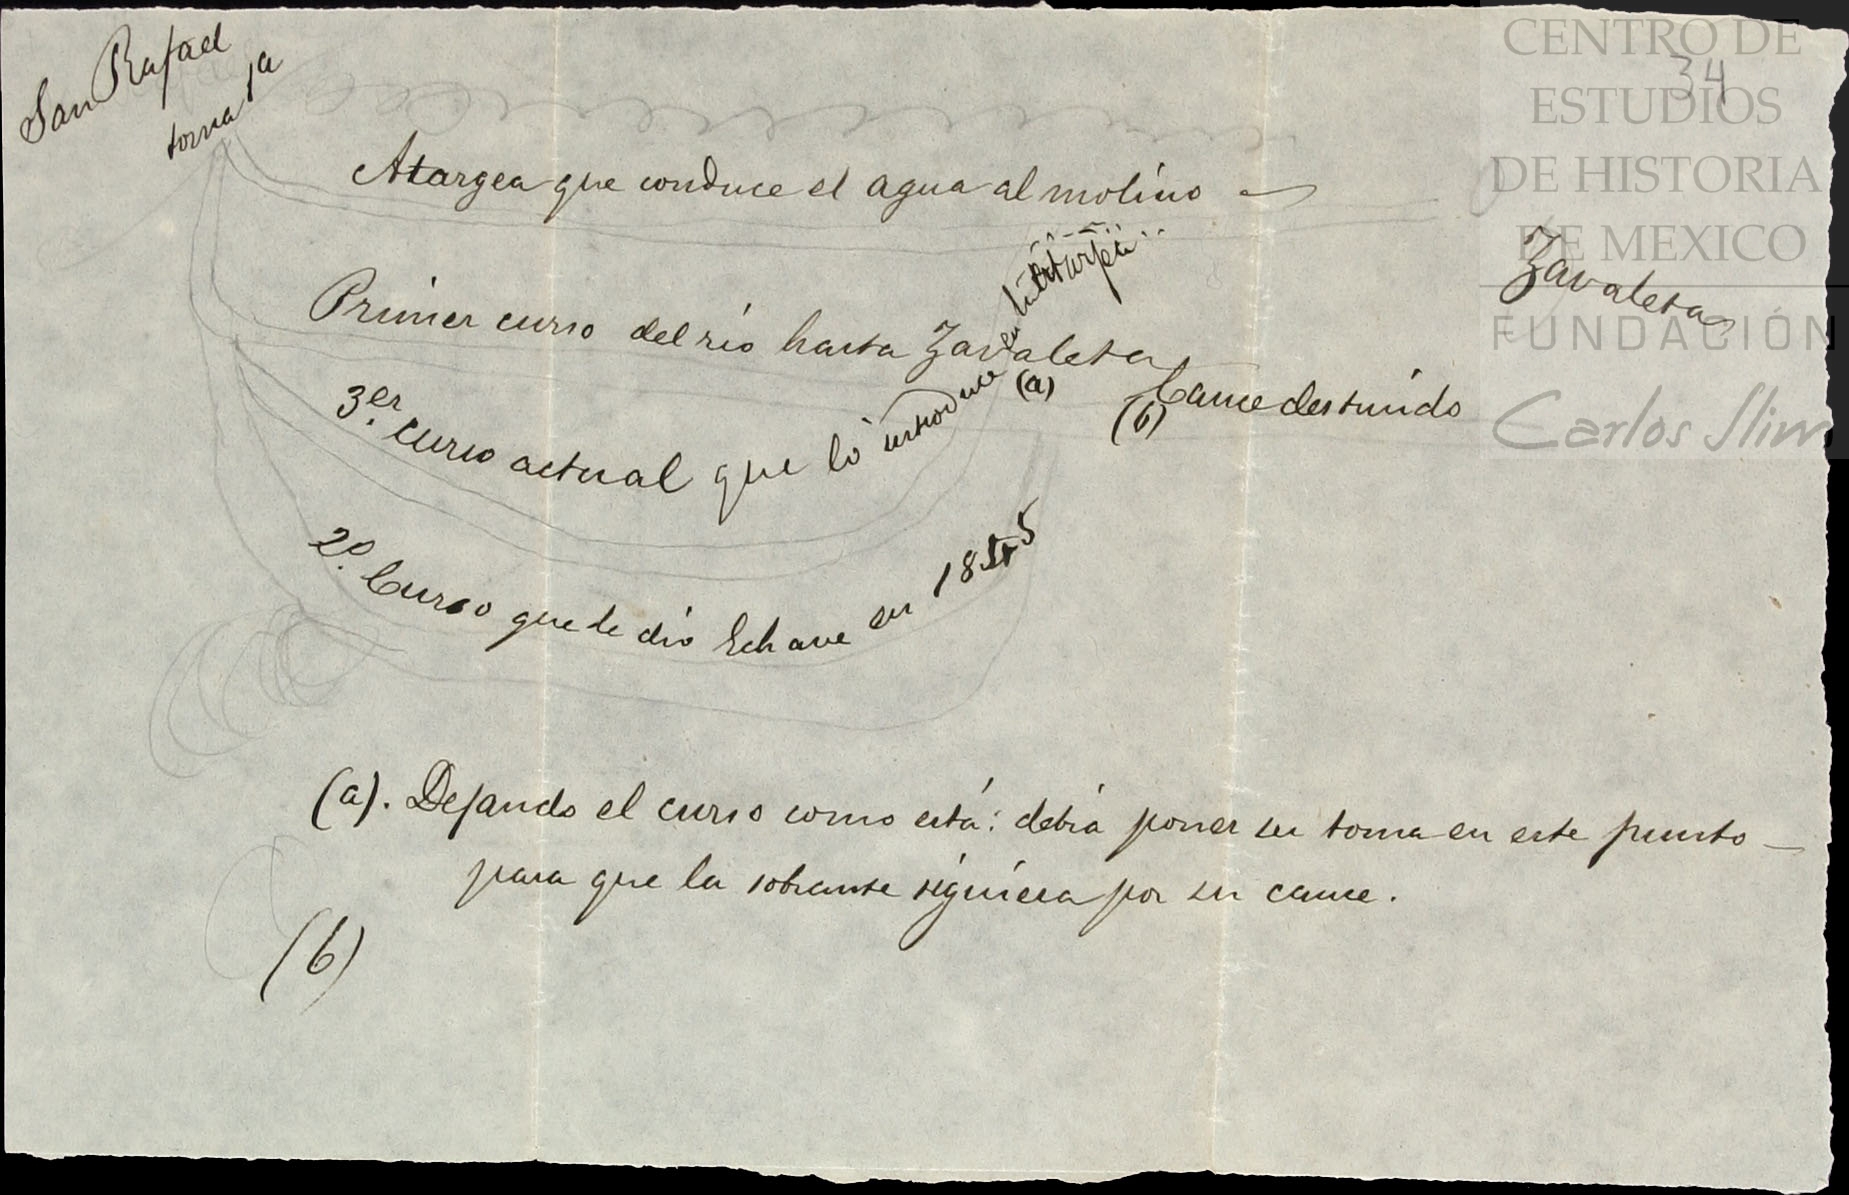 San Rafael
toma 1a
34
Atargea que conduce el agua al molino
Zavaleta
Primer curso del río hasta Zavaleta
(a)
(b) Cauce destruido
3er. curso actual que lo introduce en
2º. Curso que le dió Echave en 1855
(a). Dejando el curso como está: debía poner su toma en este punto
para que la sobrante siguiera por su cauce.
(b)
CENTRO DE
ESTUDIOS
DE HISTORIA
DE MEXICO
FUNDACIÓN
Carlos Slim